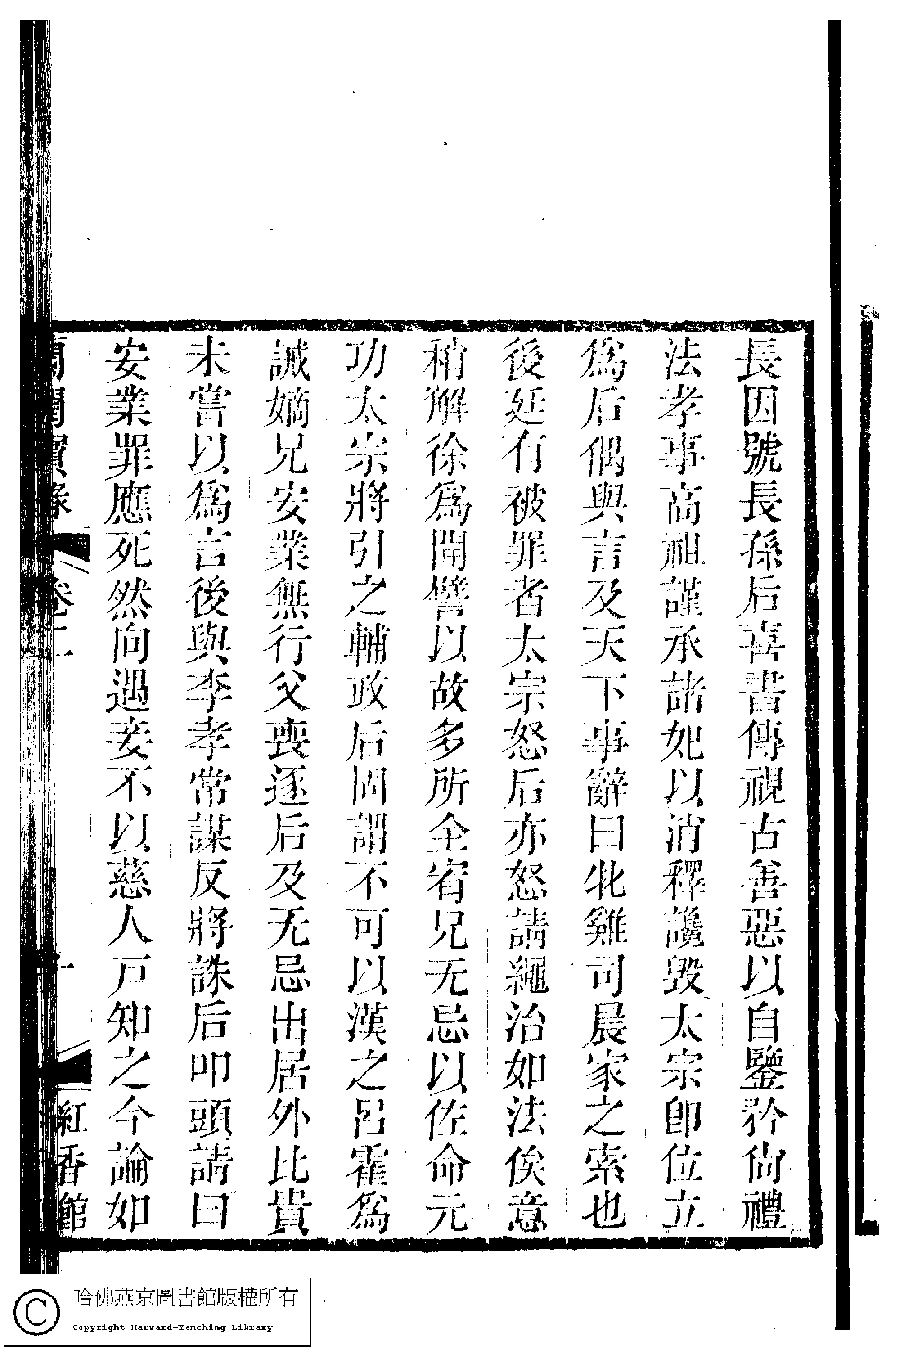 長因號長孫后喜書傳視古善惡以自鑒矜尙禮
法孝事高祖謹承諸妃以消釋讒毀太宗卽位立
爲后偶與言及天下事辭曰牝雞司晨家之索也
後廷有被罪者太宗怒后亦怒請繩治如法俟意
稍解徐爲開譬以故多所全宥兄无忌以佐命元
功太宗將引之輔政后固謂不可以漢之呂霍爲
誡嫡兄安業無行父喪逐后及无忌出居外比貴
未嘗以爲言後與李孝常謀反將誅后叩頭請曰
安業罪應死然向遇妾不以慈人戸知之今論如
蘭閨寶錄 卷二 十 紅香館
哈佛燕京圖書館版權所有
Copyright Harvard-Yenching Library